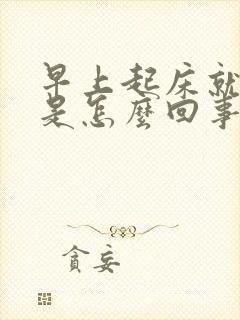 早上起床就
是怎麼回事
貪妄